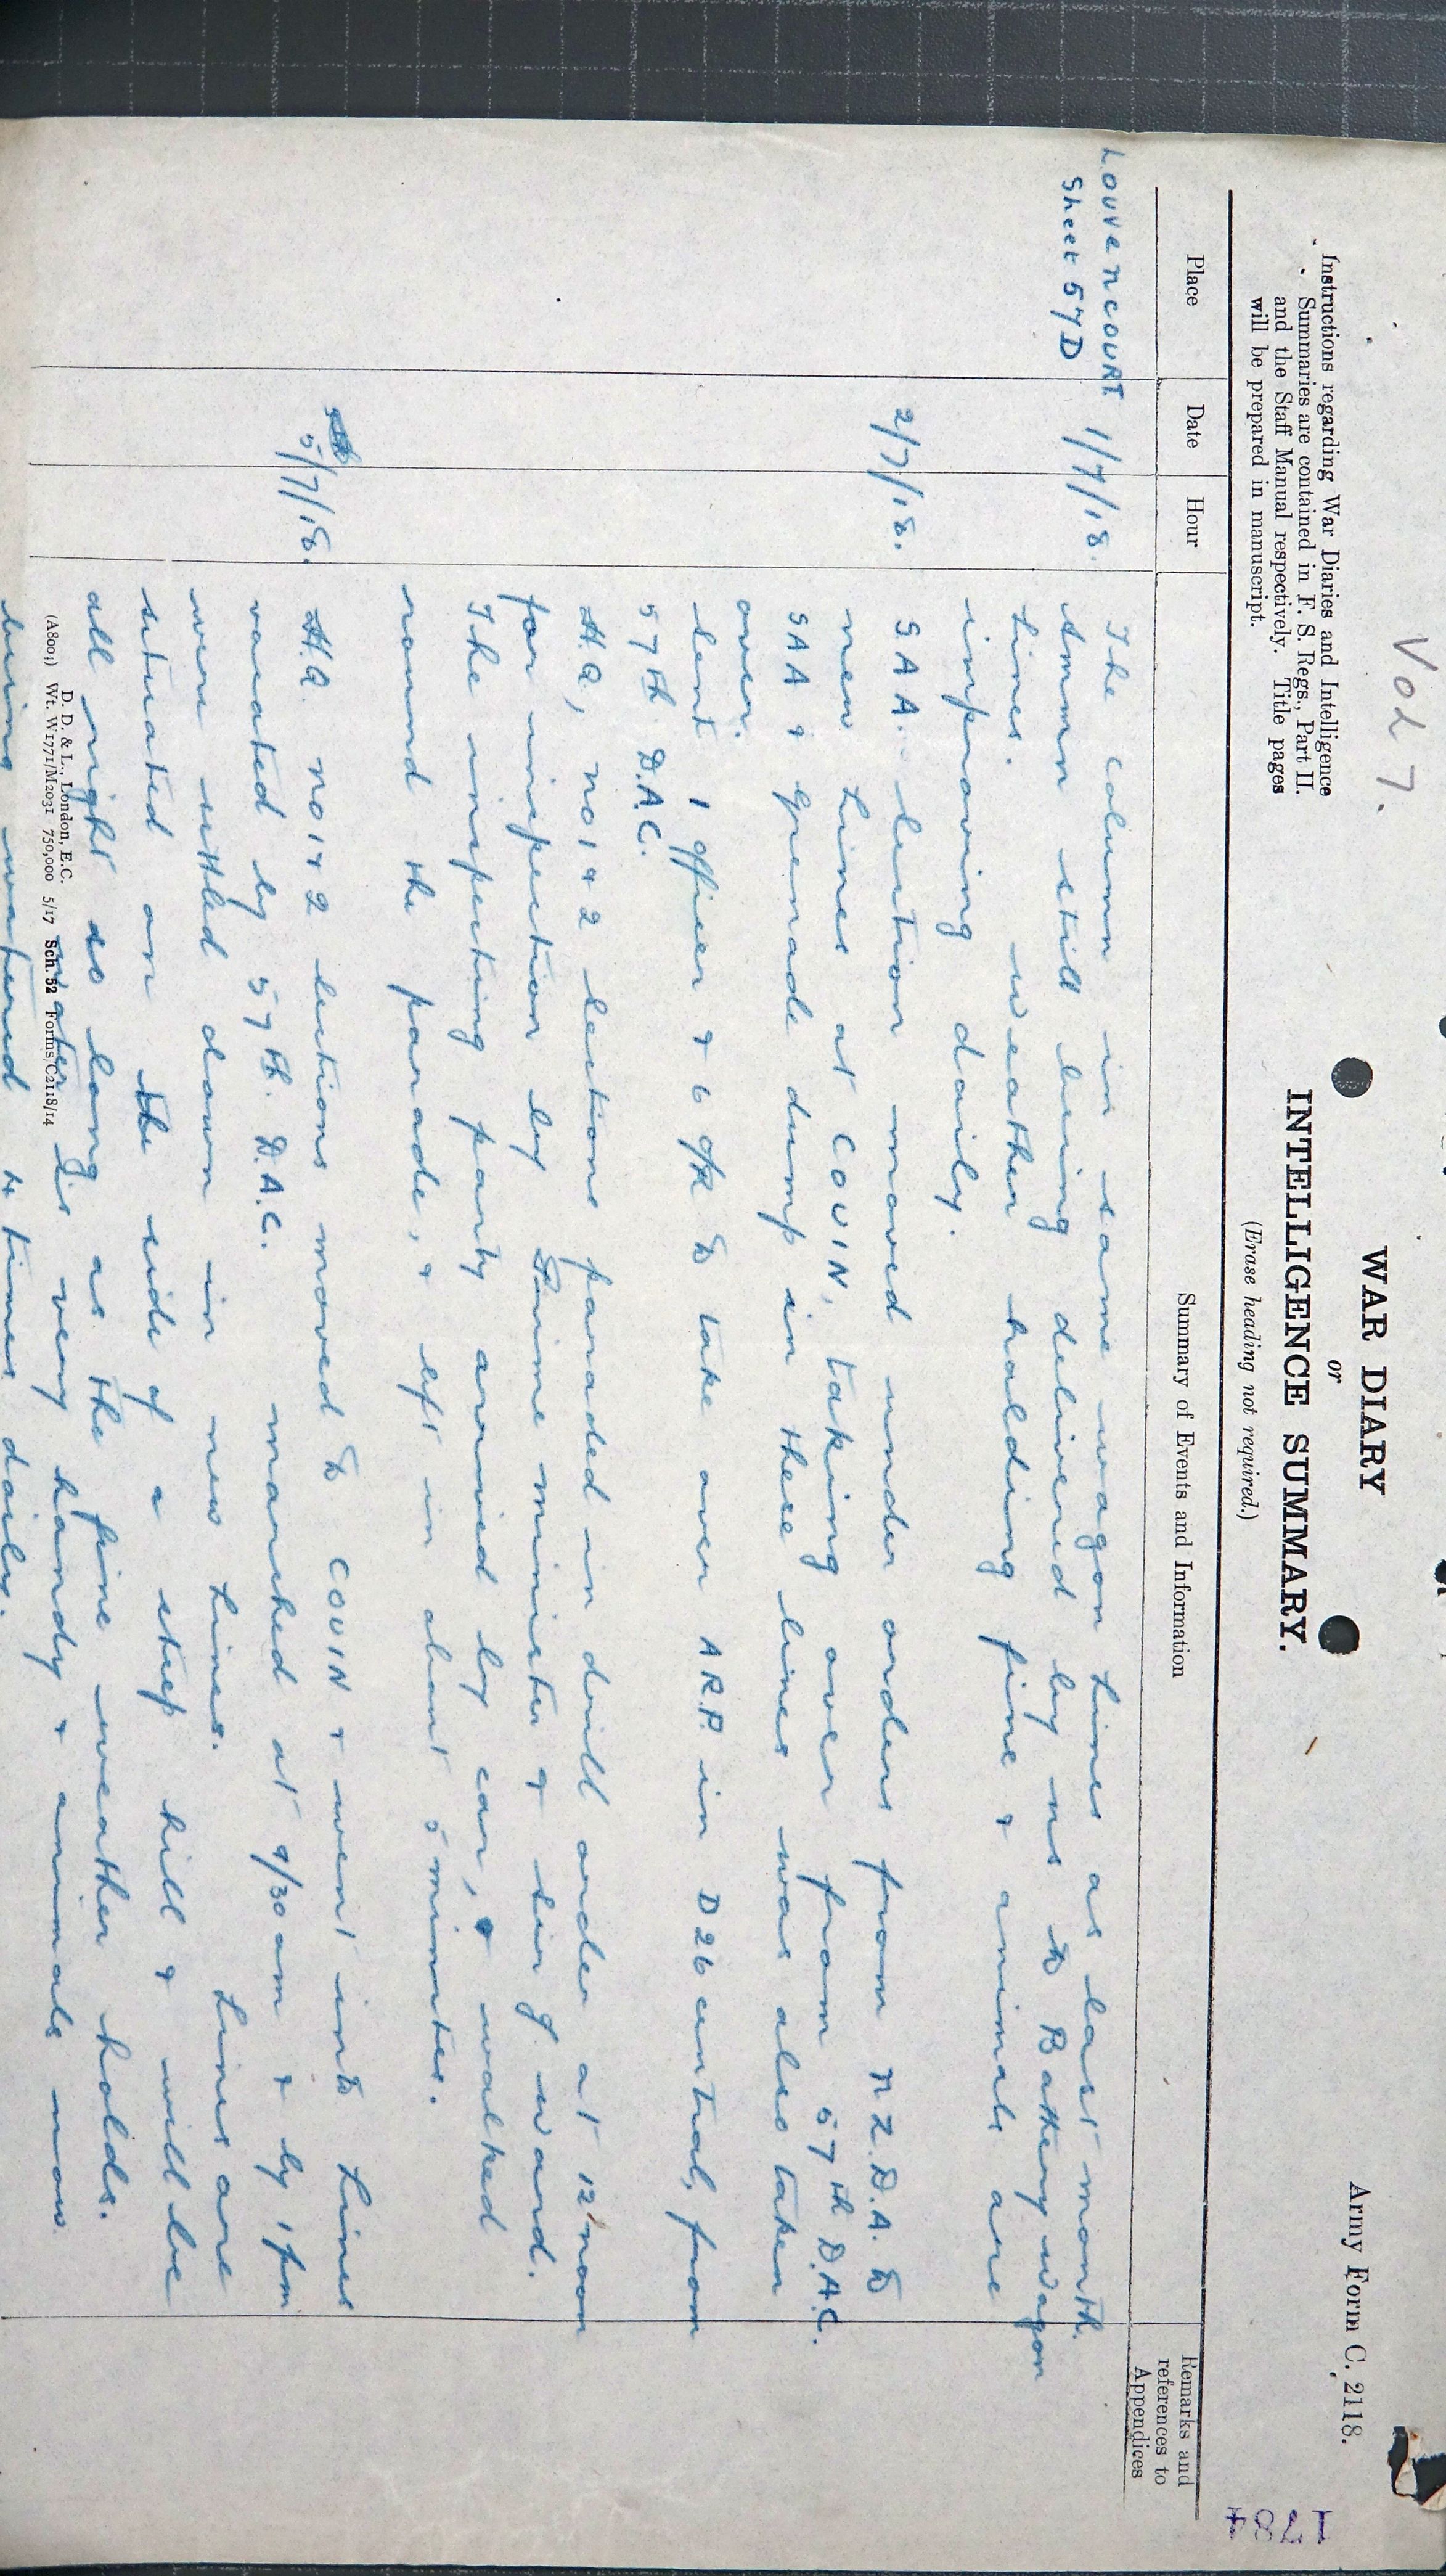 Vol 7.
Army Form C. 2118.
1784
WAR DIARY
or
INTELLIGENCE SUMMARY.
(Erase heading not required.)
Instructions regarding War Diaries and Intelligence
Summaries are contained in F. S. Regs., Part II.
and the Staff Manual respectively. Title pages
will be prepared in manuscript.
Place Date Hour Summary of Events and Information Remarks and
references to
Appendices
Louvencourt 1/7/18. The column in same wagon lines as last month.
Sheet 57D Ammn still being delivered by us to Battery wagon
lines. weather holding fine & animals are
improving daily.
2/7/18. SAA. section moved under orders from NZ.D.A. to
new lines at COUIN, taking over from 57th D.A.C.
SAA & Grenade dump in these lines was also taken
over.
Sent 1 officer & 6 O/R to take over A.R.P. in D26 central, from
57th D.A.C.
H.Q, no 1 & 2 sections paraded in drill order at 12 noon
for inspection by Prime minister & Sir J. Ward.
The inspecting party arrived by car, & walked
round the parade, & left in about 5 minutes.
5/7/18. H.Q. no 1 & 2 sections moved to COUIN & went into lines
vacated by 57th. D.A.C. marched at 9/30 am & by 1 pm
were settled down in new lines. Lines are
situated on the side of a steep hill & will be
all right so long as the fine weather holds.
water is very handy & animals now
being watered 4 times daily.
(A8001) D. D. & L., London, E.C.
Wt. W1771/M2031 750,000 5/17 Sch. 52 Forms/C2118/14